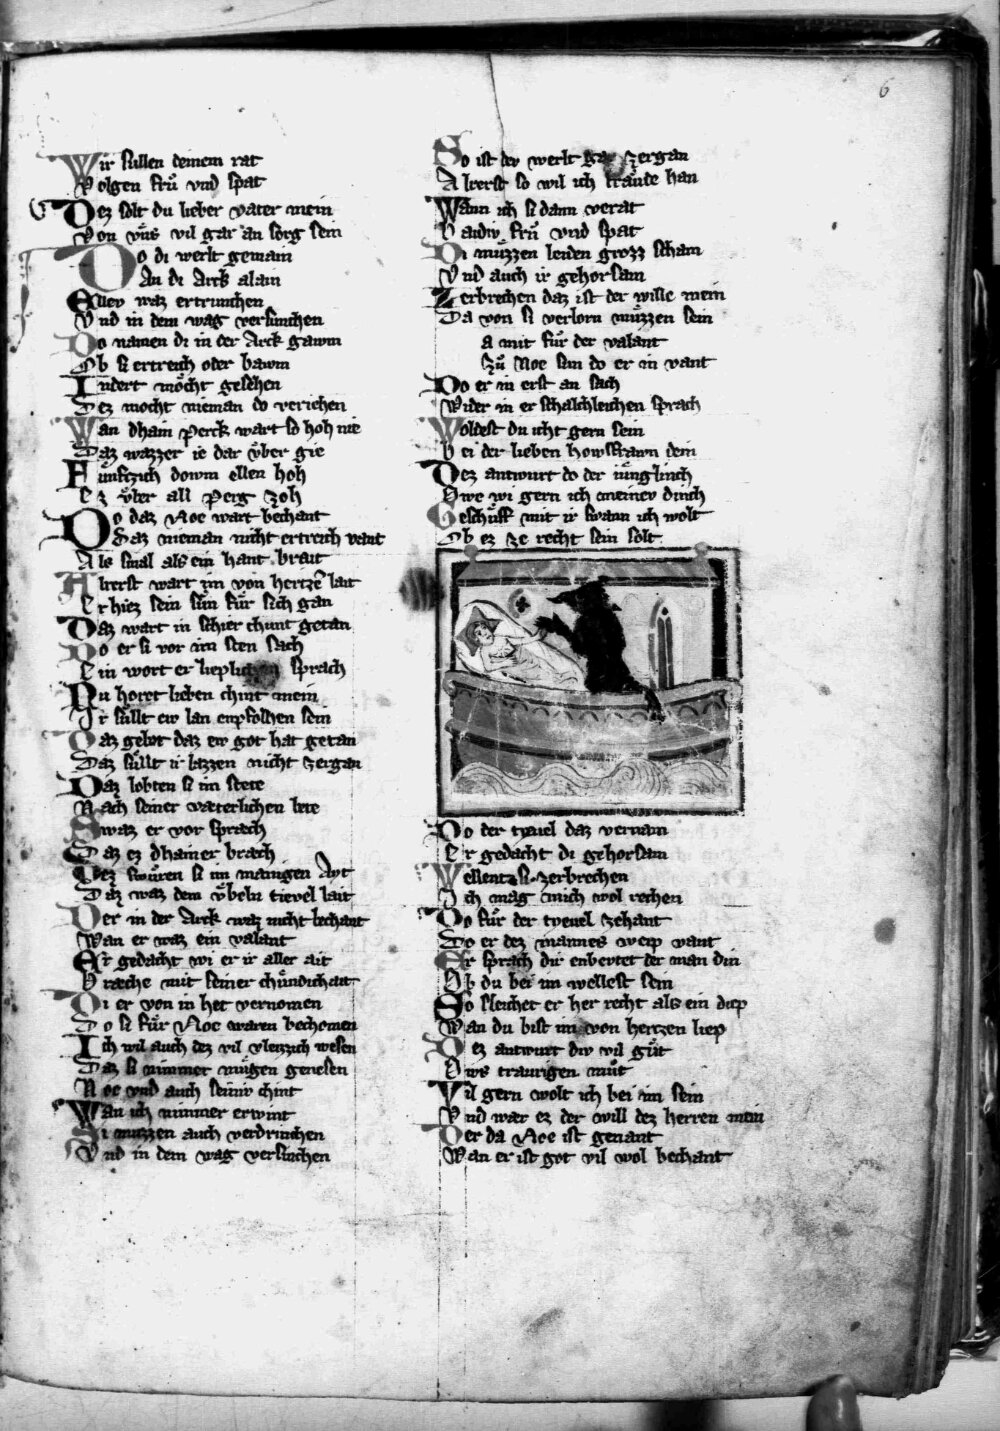 6
Wir sullen deinem rat
Volgen frů vnd spat
Dez solt du lieber vater mein
Von vns vil gar an sorg sein
Do di werlt gemain
An di Arck alain
Allev waz ertrunchen
Vnd in dem wag versunchen
Do namen di in der Arck gawm
Ob si ertreich oder bawm
Indert mőcht gesehen
Dez mocht nieman do veriehen
Wan dhain perck wart so hoh nie
Daz wazzer ie dar vber gie
Funftzich dowm ellen hoh
Ez vber all perg zoh
Do daz Noe wart bechant
Daz nieman nicht ertreich vant
Als smal als ein hant brait
Alrerst wart im von hertzē lait
Er hiez sein sun fur sich gan
Daz wart in schier chunt getan
Do er si vor im sten sach
Ein wort er lieplichen sprach
Nu horet lieben chint mein
Ir sullt ew lan enpfolhen sein
Daz gebot daz ew got hat getan
Daz sullt ir lazzen nicht zergan
Daz lobten si im stete
Nach seiner væterlichen bete
Swaz er vor sprach
Daz ez dhainer brach
Dez swůren si im manigen Ayt
Daz waz dem vbeln tievel lait
Der in der Arck waz nicht bechant
Wan er waz ein valant
Er gedacht wi er ir aller ait
Bræche mit seiner chůndichait
Di er von in het vernomen
Do si fůr Noe waren bechomen
Ich wil auch dez vil vleizzich wesen
Daz si nimmer mugen genesen
Noe vnd auch seinw chint
Wan ich nimmer erwint
Si muzzen auch verdrinchen
Vnd in dem wag versinchen
So ist dev werlt gar zergan
Alrerst so wil ich frawde han
Wann ich si dann verat
Baidiv frů vnd spat
Si muzzen leiden grozz scham
Vnd auch ir gehorsam
Zerbrechen daz ist der wille mein
Da von si verlorn muzzen sein
a mit fůr der valant
Zů Noe sun do er in vant
Do er in erst an sach
Wider in er schalchleichen sprach
Woldest du icht gern sein
Bei der lieben howsfrawn dein
Dez antwurt do der iunglinch
Owe wi gern ich meinev dinch
Geschuff mit ir swann ich wolt
Ob ez ze recht sein solt
Do der tyeuel daz vernam
Er gedacht di gehorsam
Wellent si zerbrechen
Ich mag mich wol rechen
Do fůr der tyeuel zehant
Do er dez mannes weip vant
Er sprach dir enbevtet der man din
Ob du bei im wellest sein
So sleichet er her recht als ein diep
Wan du bist im von hertzen liep
Dez antwurt div vil gůt
Avs traurigen mut
Vil gern wolt ich bei im sein
Vnd wær ez der will dez herren mein
Der da Noe ist genant
Wan er ist got vil wol bechant